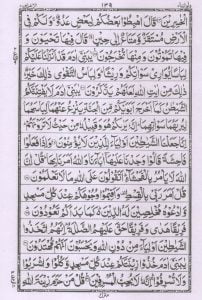 ١٣٩
الْخٰسِرِيْنَ قَالَ اهْبِطُوْا بَعْضُكُمْ لِبَعْضٍ عَدُوٌّ وَلَكُمْ فِي
الْاَرْضِ مُسْتَقَرٌّ وَّمَتَاعٌ اِلٰى حِيْنٍ قَالَ فِيْهَا تَحْيَوْنَ وَ
فِيْهَا تَمُوْتُوْنَ وَمِنْهَا تُخْرَجُوْنَ يٰبَنِيْ اٰدَمَ قَدْ اَنْزَلْنَا عَلَيْكُمْ
لِبَاسًا يُّوَارِيْ سَوْاٰتِكُمْ وَرِيْشًا وَلِبَاسُ التَّقْوٰى ذٰلِكَ خَيْرٌ
ذٰلِكَ مِنْ اٰيٰتِ اللّٰهِ لَعَلَّهُمْ يَذَّكَّرُوْنَ يٰبَنِيْ اٰدَمَ لَا يَفْتِنَنَّكُمُ
الشَّيْطٰنُ كَمَا اَخْرَجَ اَبَوَيْكُمْ مِّنَ الْجَنَّةِ يَنْزِعُ عَنْهُمَا لِبَاسَهُمَا
لِيُرِيَهُمَا سَوْاٰتِهِمَا اِنَّهٗ يَرٰىكُمْ هُوَ وَقَبِيْلُهٗ مِنْ حَيْثُ لَا تَرَوْنَهُمْ
اِنَّا جَعَلْنَا الشَّيٰطِيْنَ اَوْلِيَآءَ لِلَّذِيْنَ لَا يُؤْمِنُوْنَ وَاِذَا فَعَلُوْا
فَاحِشَةً قَالُوْا وَجَدْنَا عَلَيْهَآ اٰبَآءَنَا وَاللّٰهُ اَمَرَنَا بِهَا قُلْ اِنَّ
اللّٰهَ لَا يَاْمُرُ بِالْفَحْشَآءِ اَتَقُوْلُوْنَ عَلَى اللّٰهِ مَا لَا تَعْلَمُوْنَ
قُلْ اَمَرَ رَبِّيْ بِالْقِسْطِ وَاَقِيْمُوْا وُجُوْهَكُمْ عِنْدَ كُلِّ مَسْجِدٍ
وَّادْعُوْهُ مُخْلِصِيْنَ لَهُ الدِّيْنَ كَمَا بَدَاَكُمْ تَعُوْدُوْنَ
فَرِيْقًا هَدٰى وَفَرِيْقًا حَقَّ عَلَيْهِمُ الضَّلٰلَةُ اِنَّهُمُ اتَّخَذُوا
الشَّيٰطِيْنَ اَوْلِيَآءَ مِنْ دُوْنِ اللّٰهِ وَيَحْسَبُوْنَ اَنَّهُمْ مُّهْتَدُوْنَ
يٰبَنِيْ اٰدَمَ خُذُوْا زِيْنَتَكُمْ عِنْدَ كُلِّ مَسْجِدٍ وَّكُلُوْا وَاشْرَبُوْا
وَلَا تُسْرِفُوْا اِنَّهٗ لَا يُحِبُّ الْمُسْرِفِيْنَ قُلْ مَنْ حَرَّمَ زِيْنَةَ اللّٰهِ